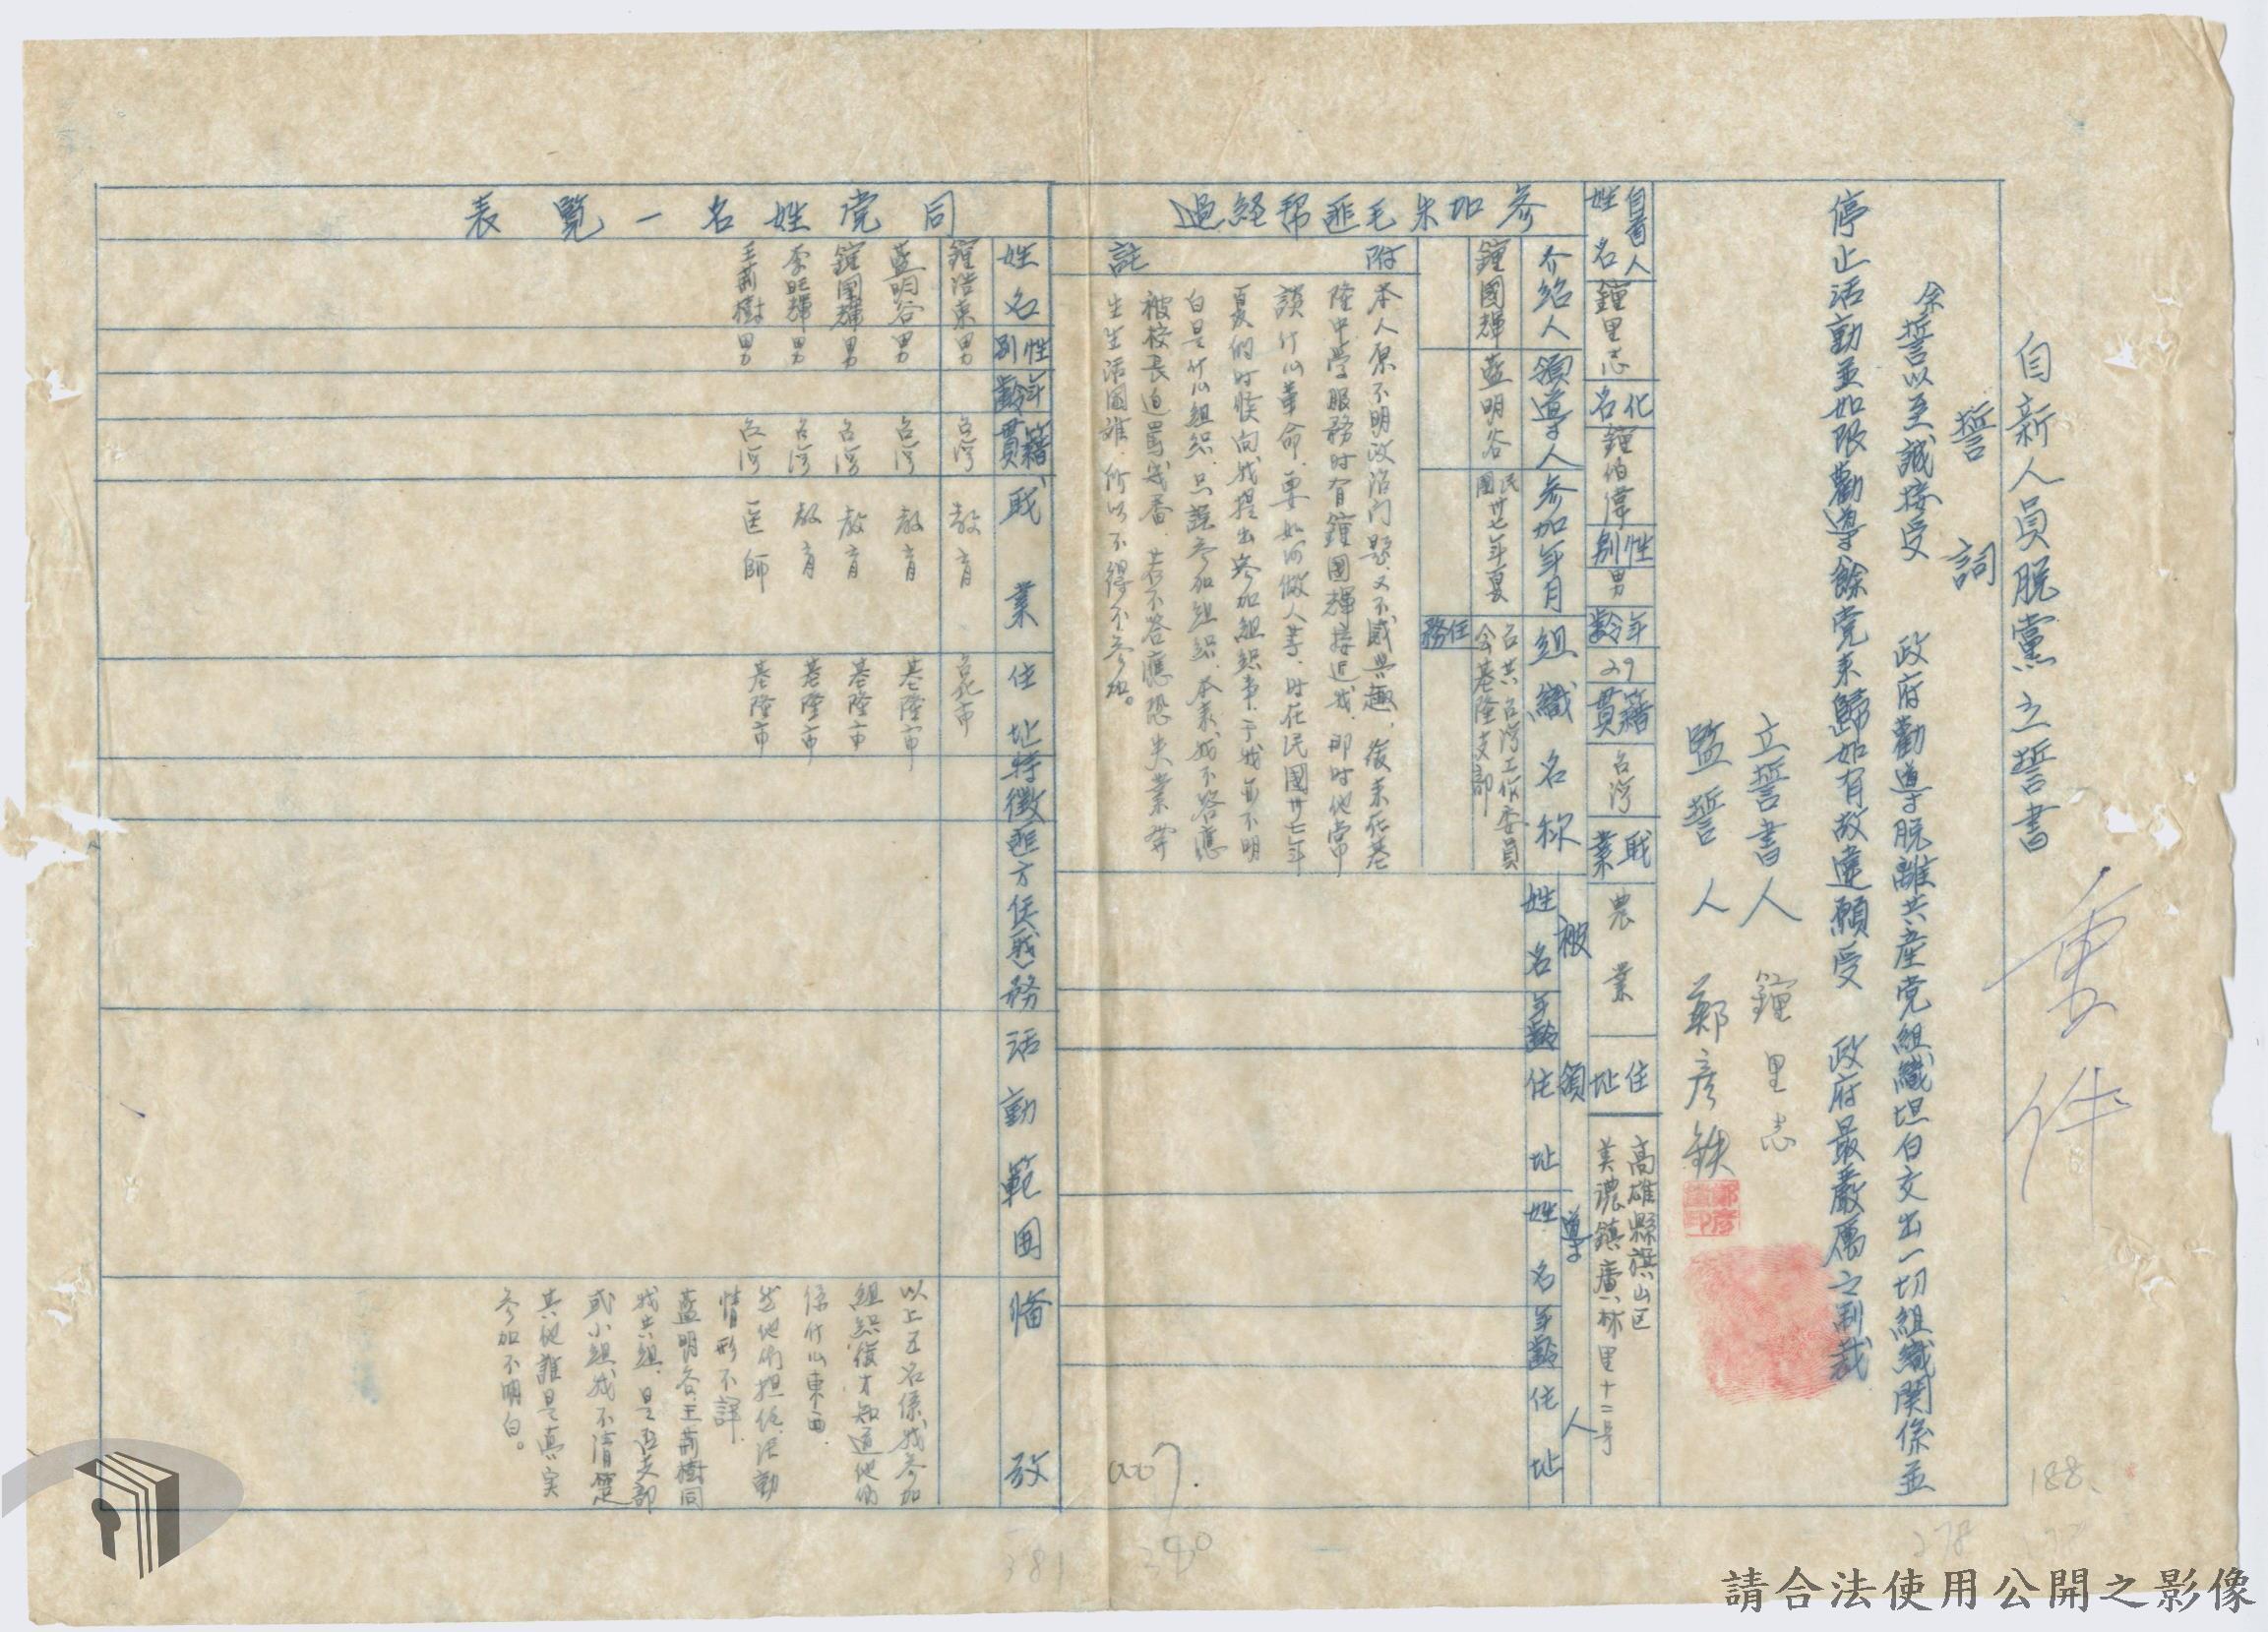 自新人員脫黨之誓書
誓詞
余誓以至誠接受　政府勸導脫離共産党組織坦白交出一切組織関係並
停止活動並如限勸導餘党来歸如有故違願受　政府最嚴厲之制裁
立誓書人　鐘里志
監誓人　鄭彦鉄
重件
自首人姓名
鐘里志
化名
鐘伯偉
性別
男
年齡
29
籍貫
台湾
职業
農業
住址
高雄縣旗山区
美濃鎮廣林里十二号
參加朱毛匪幇経過
介紹人
鐘國輝
領導人
藍明谷
参加年月
民國卅七年夏
組織名称
台共台湾工作委員
会基隆支部
任務
被領導人
姓名
年齡
住址
姓名
年齡
住址
附註
本人原不明政治问題、又不感興趣，後来在基
隆中學服務时有鐘國輝接近我、那时他常
談什么革命、要如何做人等、时在民國卅七年
夏的时候向我提出参加組織事、于我並不明
白是什么組織、只說参加組織、本来我不答應
被校長迫罵幾番、若不答應恐失業、
生生活困难、所以不得不参加。
同党姓名一覧表
姓名
性別
年齡
籍貫
职業
住址
特徵
匪方任职務
活動範囲
備攷
鐘浩東　男　台湾　教育　台北市
藍明谷　男　台湾　教育　基隆市
鐘國輝　男　台湾　教育　基隆市
李旺輝　男　台湾　教育　基隆市
王荊樹　男　台湾　医師　基隆市
以上五名係我参加
組織後才知道他們
係什么東西、
於他們担任活動
情形不詳、
藍明谷、王荊樹同
我共組、是否支部
或小組我不清楚
其他誰是真实
参加不明白。
007.
188.
278
380
381
請合法使用公開之影像